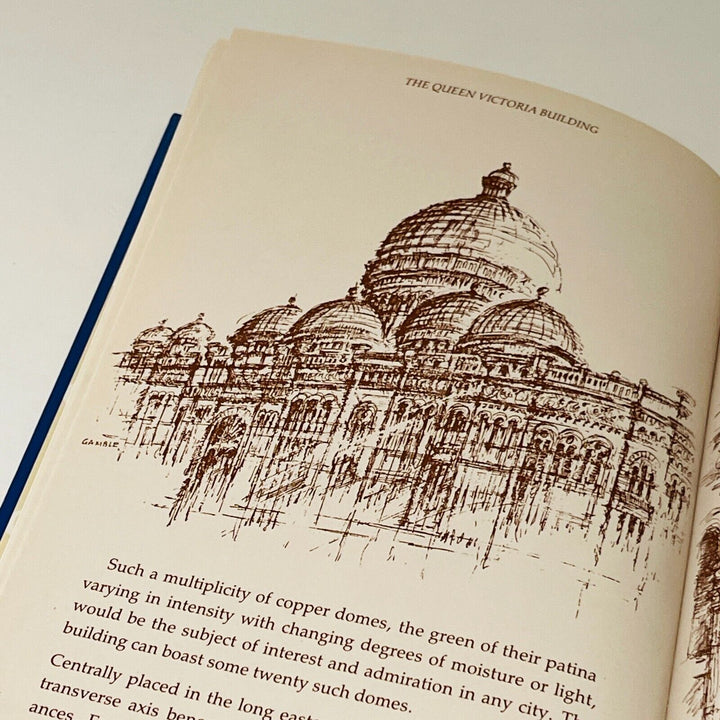 THE QUEEN VICTORIA BUILDING
GAMBLE
Such a multiplicity of copper domes, the green of their patina
varying in intensity with changing degrees of moisture or light,
would be the subject of interest and admiration in any city. Th
building can boast some twenty such domes.
Centrally placed in the long east
transverse axis ben
ances.